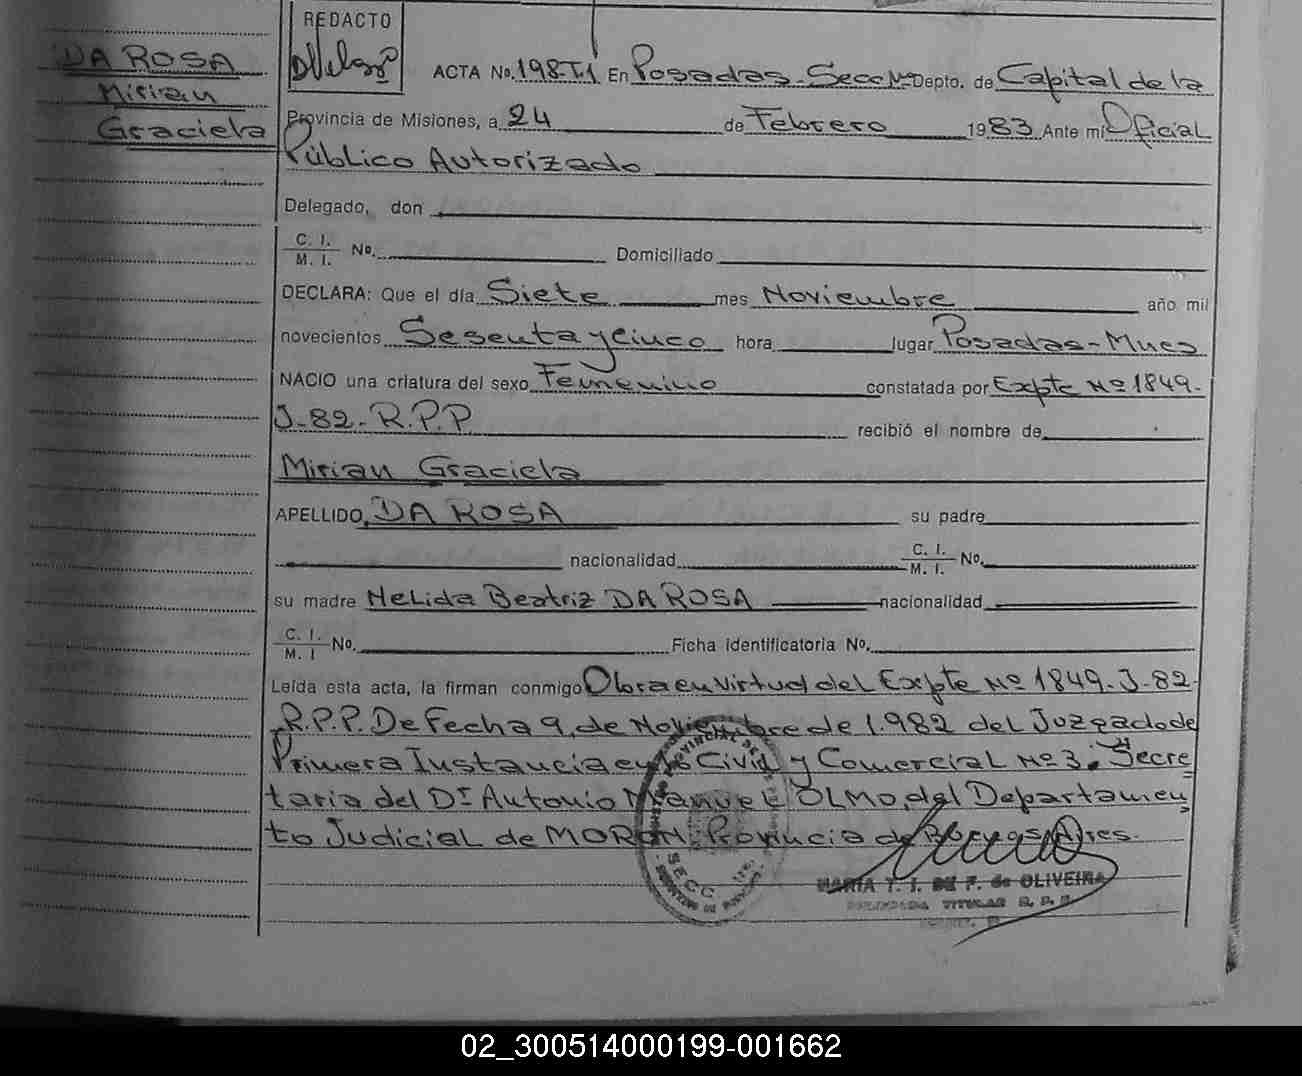 DA ROSA
Mirian
Graciela
REDACTO
ACTA No. 198-T.1 En Posadas Secc Depto. de Capital de la
Provincia de Misiones, a 24 de Febrero 1983 Ante mí Oficial
Público Autorizado
Delegado, don
C. I.
M. I. No. Domiciliado
DECLARA: Que el día Siete mes Noviembre año mil
novecientos Sesenta y Cinco hora lugar Posadas-Mnes
NACIO una criatura del sexo Femenino constatada por Expte Nº 1849-
J-82-R.P.P. recibió el nombre de
Mirian Graciela
APELLIDO, DA ROSA su padre
nacionalidad C. I.
M. I. No.
su madre Nelida Beatriz DA ROSA nacionalidad
C. I.
M. I No. Ficha identificatoria No.
Leída esta acta, la firman conmigo Obra en virtud del Expte Nº 1849-J-82-
R.P.P. De Fecha 9, de Noviembre de 1.982 del Juzgado de
Primera Instancia en lo Civil y Comercial Nº 3. Secre
taria del Dr Antonio Manuel OLMO, del Departamen
to Judicial de MORON Provincia de Buenos Aires.
SECC.
MARIA T. I. DE F. de OLIVEIRA
TITULAR
02_300514000199-001662